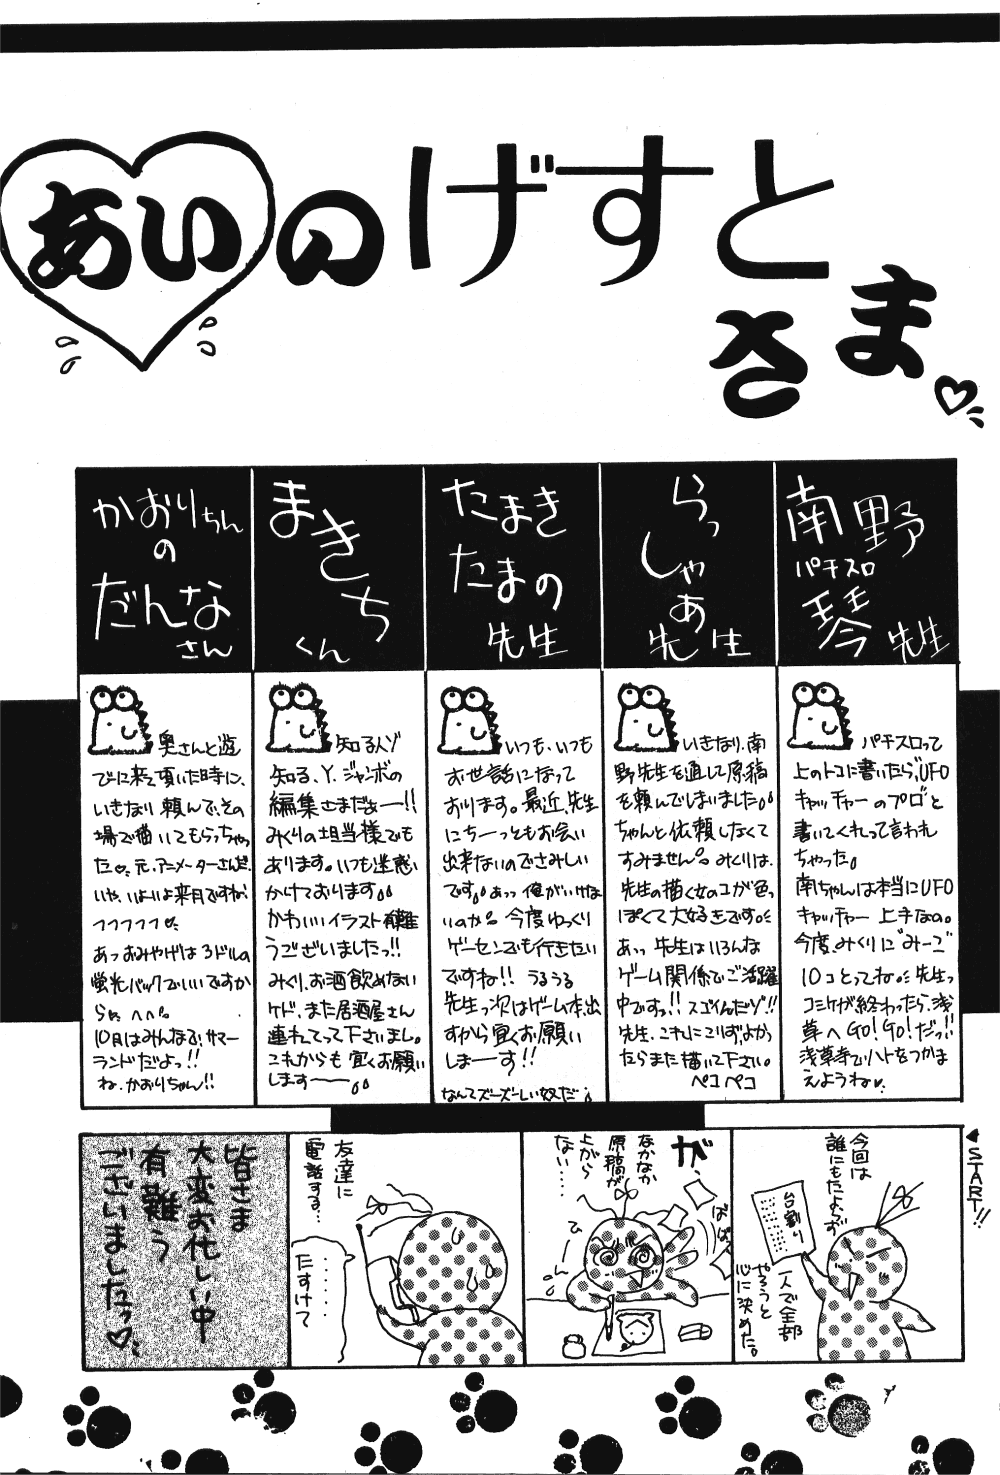 あいのげすと
さま
南野
パチスロ
琴先生
らっ
しゃあ
先生
たまき
たまの
先生
まきち
くん
かおりちん
の
だんな
さん
パチスロって
上のトコに書いたら、UFO
キャッチャーのプロ"と
書いてくれって言われ
ちゃった。
南ちゃんは本当にUFO
キャッチャー上手なの。
今度、みくりに"みーご"
10コとってね。先生っ
コミケが終わったら、浅
草へGO!GO!だっ!!
浅草寺でハトをつかま
えようね♡
いきなり、南
野先生を通して原稿
を頼んでしまいました。
ちゃんと依頼しなくて
すみません。みくりは、
先生の描く女のコが色っ
ぽくて大好きです。
あっ 先生はいろんな
ゲーム関係でご活躍
中ですっ!!スゴイんだゾ!!
先生、これにこりず、よかっ
たらまた描いて下さい。
ペコペコ
いつも、いつも
お世話になって
おります。最近、先生
にちーっともお会い
出来ないのでさみしい
です。あっ俺がいけな
いのか。今度ゆっくり
ゲーセンでも行きたい
ですね!!うるうる
先生っ次はゲーム本、出
すから宜くお願い
しまーす!!
なんてズーズーしい奴だ
知る人ゾ
知る、Y.ジャンボの
編集さまだぁー!!
みくりの担当様でも
あります。いつも迷惑
かけております
かわいいイラスト有難
うございましたっ!!
みくり、お酒飲めない
ケド、また居酒屋さん
連れてって下さいまし。
これからも宜くお願い
しますーー
奥さんと遊
びに来て頂いた時に、
いきなり頼んで、その
場で描いてもらっちゃっ
た♡元、アニメーターさんだ。
いや、いよいよ来月ですねっ
フフフフフ
あっおみやげは3ドルの
蛍光パックでいいですか
らね。
10月はみんなで、サマー
ランドだよっ!!
ね、かおりちゃん!!
START!!
今回は
誰にもたよらず
台割り
一人で全部
やろうと
心に決めた。
が、
なかなか
原稿が
上がら
ない……
ばばっ
ひーん
友達に
電話する…
……
たすけて
皆さま
大変お忙しい中
有難う
ございましたっ♡